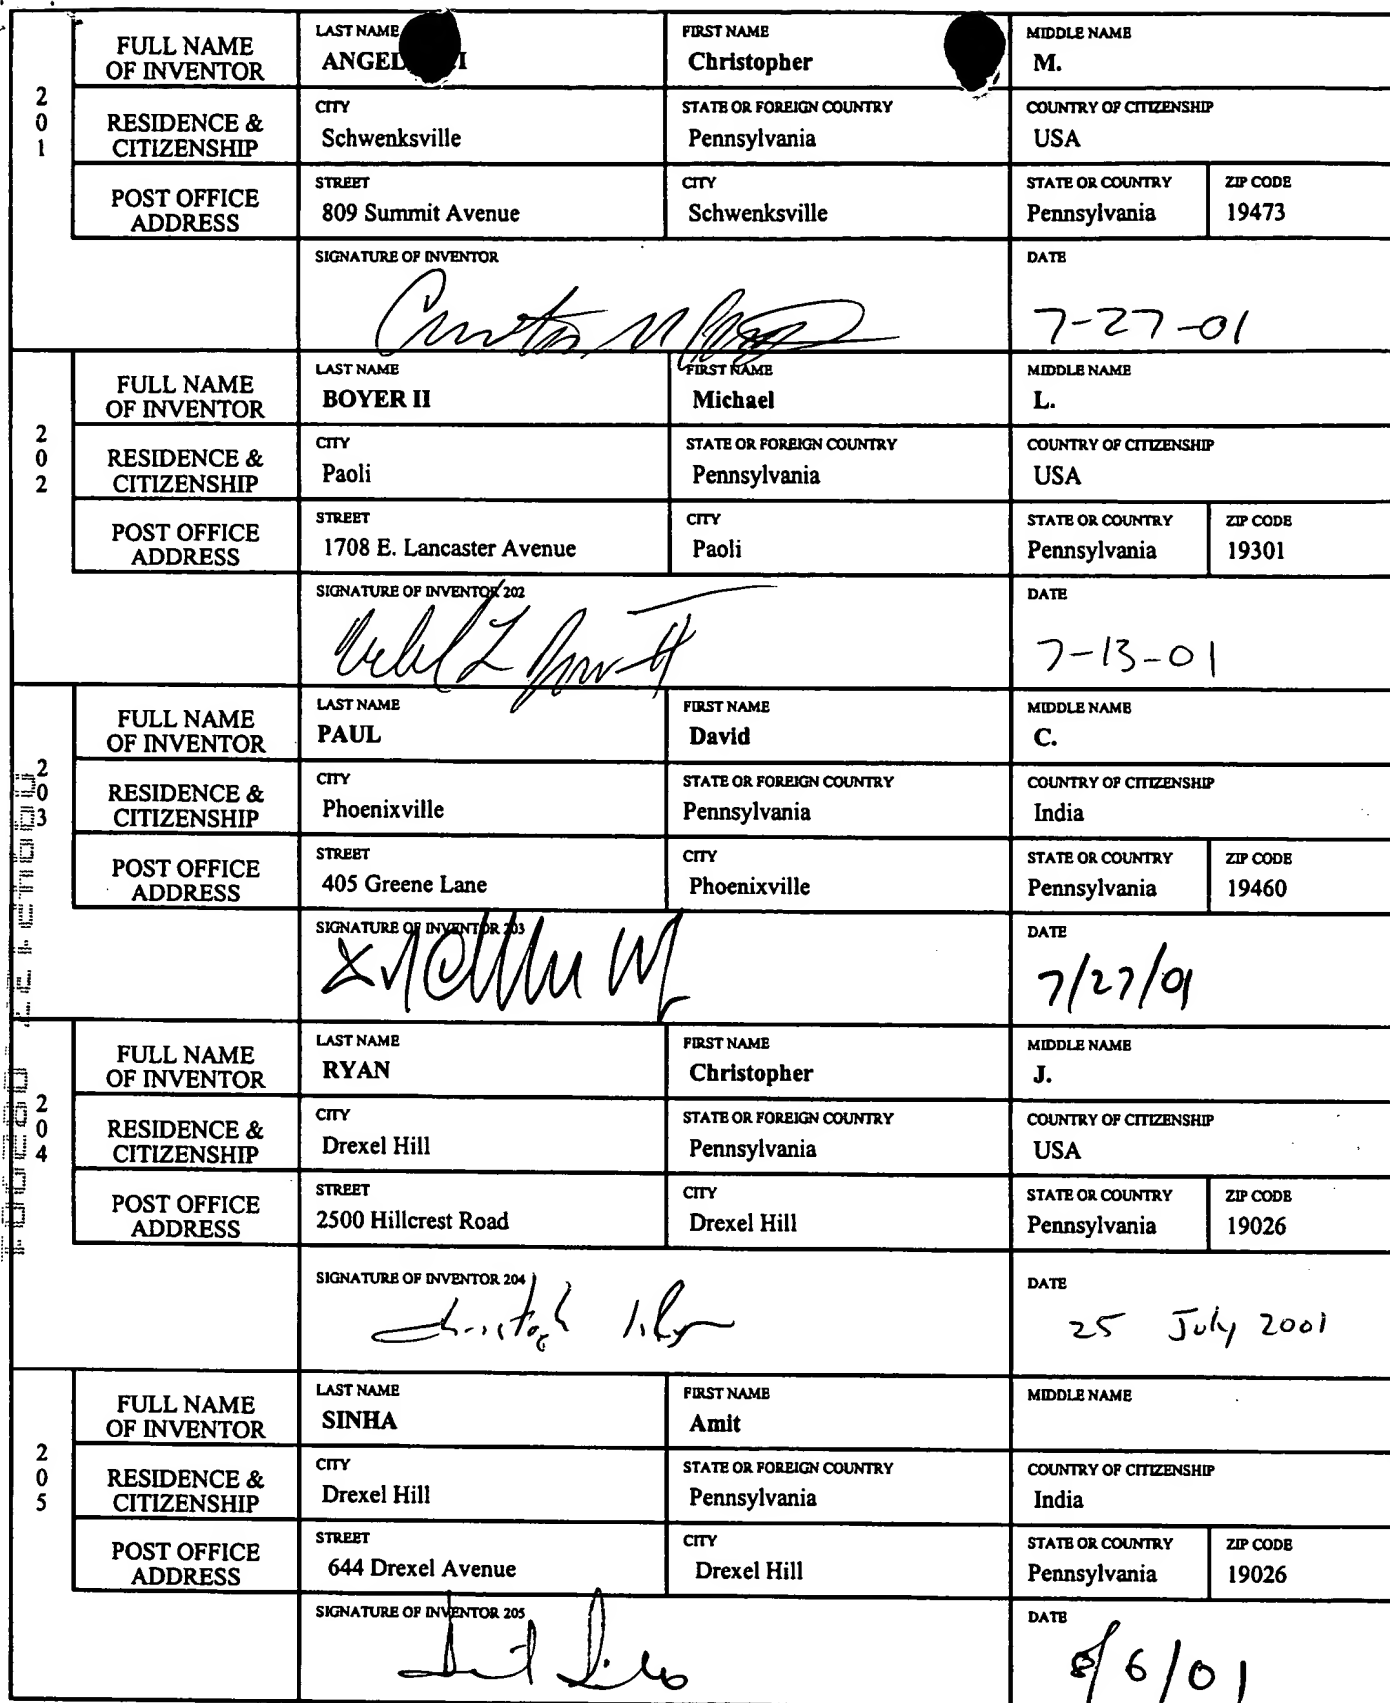 201
FULL NAME OF INVENTOR
LAST NAME
FIRST NAME
Christopher
MIDDLE NAME
M.
RESIDENCE & CITIZENSHIP
CITY
Schwenksville
STATE OR FOREIGN COUNTRY
Pennsylvania
COUNTRY OF CITIZENSHIP
USA
POST OFFICE ADDRESS
STREET
809 Summit Avenue
CITY
Schwenksville
STATE OR COUNTRY
Pennsylvania
ZIP CODE
19473
SIGNATURE OF INVENTOR
DATE
7-27-01
202
FULL NAME OF INVENTOR
LAST NAME
BOYER II
FIRST NAME
Michael
MIDDLE NAME
L.
RESIDENCE & CITIZENSHIP
CITY
Paoli
STATE OR FOREIGN COUNTRY
Pennsylvania
COUNTRY OF CITIZENSHIP
USA
POST OFFICE ADDRESS
STREET
1708 E. Lancaster Avenue
CITY
Paoli
STATE OR COUNTRY
Pennsylvania
ZIP CODE
19301
SIGNATURE OF INVENTOR 202
DATE
7-13-01
203
FULL NAME OF INVENTOR
LAST NAME
PAUL
FIRST NAME
David
MIDDLE NAME
C.
RESIDENCE & CITIZENSHIP
CITY
Phoenixville
STATE OR FOREIGN COUNTRY
Pennsylvania
COUNTRY OF CITIZENSHIP
India
POST OFFICE ADDRESS
STREET
405 Greene Lane
CITY
Phoenixville
STATE OR COUNTRY
Pennsylvania
ZIP CODE
19460
SIGNATURE OF INVENTOR 203
DATE
7/27/01
204
FULL NAME OF INVENTOR
LAST NAME
RYAN
FIRST NAME
Christopher
MIDDLE NAME
J.
RESIDENCE & CITIZENSHIP
CITY
Drexel Hill
STATE OR FOREIGN COUNTRY
Pennsylvania
COUNTRY OF CITIZENSHIP
USA
POST OFFICE ADDRESS
STREET
2500 Hillcrest Road
CITY
Drexel Hill
STATE OR COUNTRY
Pennsylvania
ZIP CODE
19026
SIGNATURE OF INVENTOR 204
DATE
25 July 2001
205
FULL NAME OF INVENTOR
LAST NAME
SINHA
FIRST NAME
Amit
MIDDLE NAME
RESIDENCE & CITIZENSHIP
CITY
Drexel Hill
STATE OR FOREIGN COUNTRY
Pennsylvania
COUNTRY OF CITIZENSHIP
India
POST OFFICE ADDRESS
STREET
644 Drexel Avenue
CITY
Drexel Hill
STATE OR COUNTRY
Pennsylvania
ZIP CODE
19026
SIGNATURE OF INVENTOR 205
DATE
8/6/01